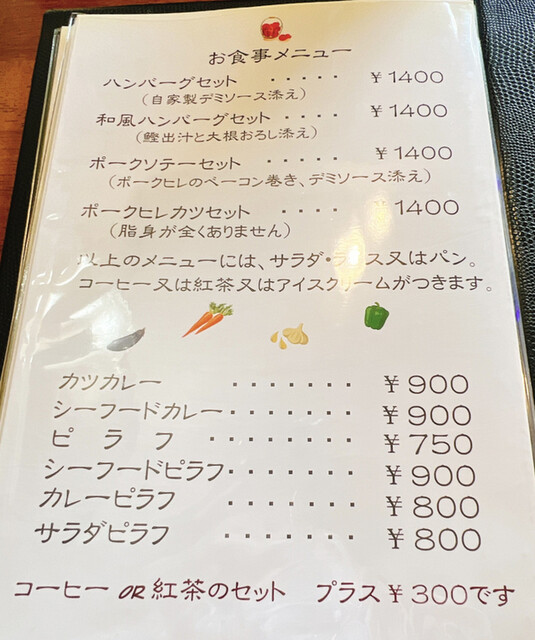 お食事メニュー
ハンバーグセット ・・・・・ ¥1400
（自家製デミソース添え）
和風ハンバーグセット ・・・・ ¥1400
（鰹出汁と大根おろし添え）
ポークソテーセット ・・・・・ ¥1400
（ポークヒレのベーコン巻き、デミソース添え）
ポークヒレカツセット ・・・・ ¥1400
（脂身が全くありません）
以上のメニューには、サラダ・ライス又はパン。
コーヒー又は紅茶又はアイスクリームがつきます。
カツカレー ・・・・・・・ ¥900
シーフードカレー ・・・・・・・ ¥900
ピラフ ・・・・・・・・ ¥750
シーフードピラフ ・・・・・・・ ¥900
カレーピラフ ・・・・・・・ ¥800
サラダピラフ ・・・・・・・ ¥800
コーヒー OR 紅茶のセット プラス¥300です